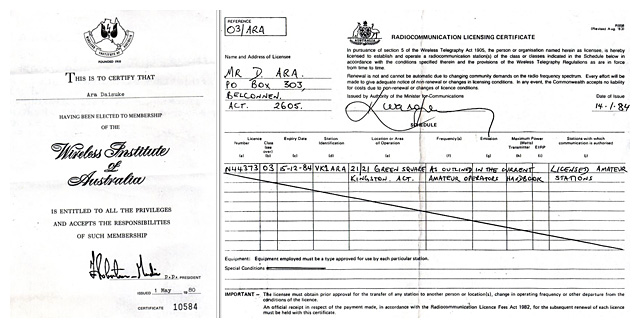 FOUNDED 1910
THIS IS TO CERTIFY THAT
Ara Daisuke
HAVING BEEN ELECTED TO MEMBERSHIP
OF THE
Wireless Institute
of
Australia
IS ENTITLED TO ALL THE PRIVILEGES
AND ACCEPTS THE RESPONSIBILITIES
OF SUCH MEMBERSHIP
P.P. PRESIDENT
ISSUED 1 May 1980
CERTIFICATE 10584
REFERENCE
03/ARA
(Revised Aug. 83)
RADIOCOMMUNICATION LICENSING CERTIFICATE
In pursuance of section 5 of the Wireless Telegraphy Act 1905, the person or organisation named herein as licensee, is hereby
licensed to establish and operate a radiocommunication station(s) of the class or classes indicated in the Schedule below
in accordance with the conditions specified herein and the provisions of the Wireless Telegraphy Regulations as are in force
from time to time.
Renewal is not and cannot be automatic due to changing community demands on the radio frequency spectrum. Every effort will be made to
give adequate notice of non-renewal or changes in licensing conditions. In any event, the Commonwealth accepts no liability
for costs due to non-renewal or changes of licence conditions.
Name and Address of Licensee
MR D. ARA.
PO BOX 303,
BELCONNEN.
ACT. 2605.
Issued by Authority of the Minister for Communications
Date of Issue
14-1-84
SCHEDULE
Licence Number (a) Class (b) Expiry Date (c) Station Identification (d) Location or Area of Operation (e) Frequency(s) (f) Emission (g) Maximum Power (Watts) Transmitter (h) EIRP (i) Stations with which communication is authorised (j)
N44373 03 5-12-84 VK1ARA 21/21 GREEN SQUARE AS OUTLINED IN THE CURRENT LICENSED AMATEUR
KINGSTON. ACT. AMATEUR OPERATORS HANDBOOK STATIONS
Equipment: Equipment employed must be a type approved for use by each particular station.
Special Conditions
IMPORTANT — The licensee must obtain prior approval for the transfer of any station to another person or location(s), change in operating frequency or other departure from the
conditions of the licence.
An official receipt in respect of the payment made, in accordance with the Radiocommunication Licence Fees Act 1982, for the subsequent renewal of each licence
must be held with this certificate.